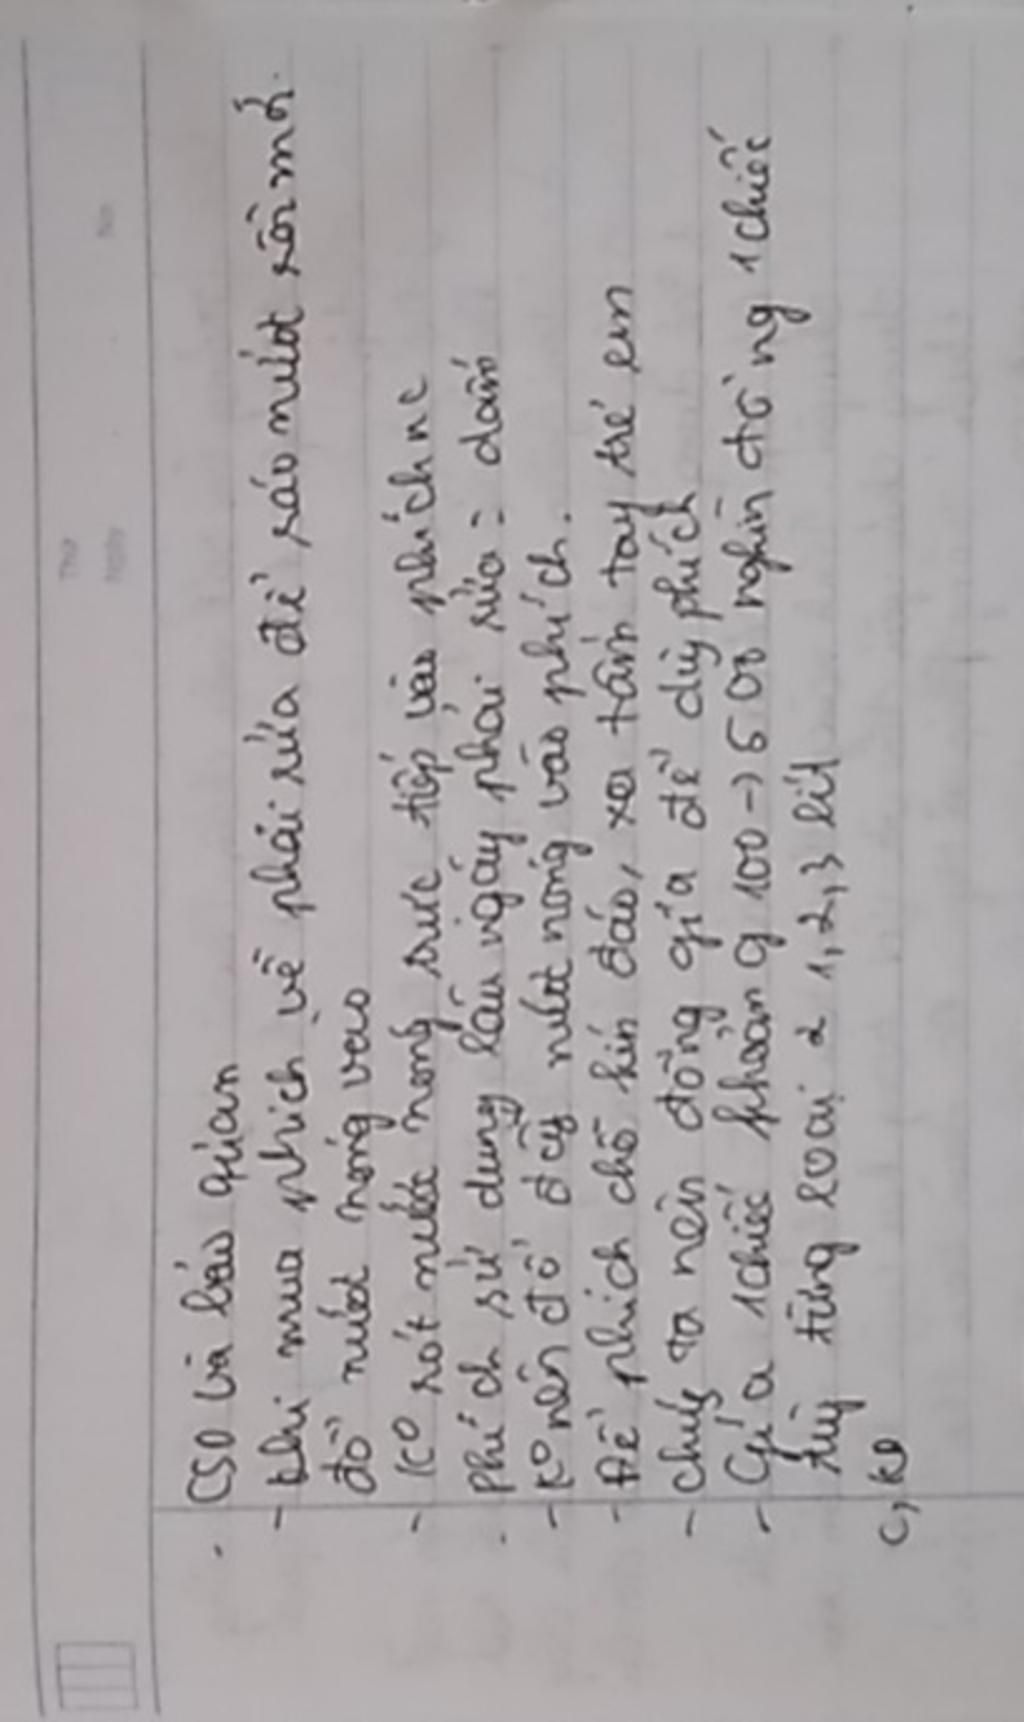 Thứ
Ngày
No.
. CSD và bảo quản
- Khi mua phích về phải rửa để ráo nước rồi mới
đổ nước nóng vào
- K° rót nước nóng trực tiếp vào phích nc
. phích sử dụng lâu ngày phải rửa = dấm
- K° nên đổ đầy nước nóng vào phích.
- Để phích chỗ kín đáo, xa tầm tay trẻ em
- chúg ta nên đóng giá để dùg phích
- Gía 1 chiếc khoảng 100 → 500 nghìn đồng 1 chiếc
tùy từng loại 2 1, 2, 3 lít
C, KB